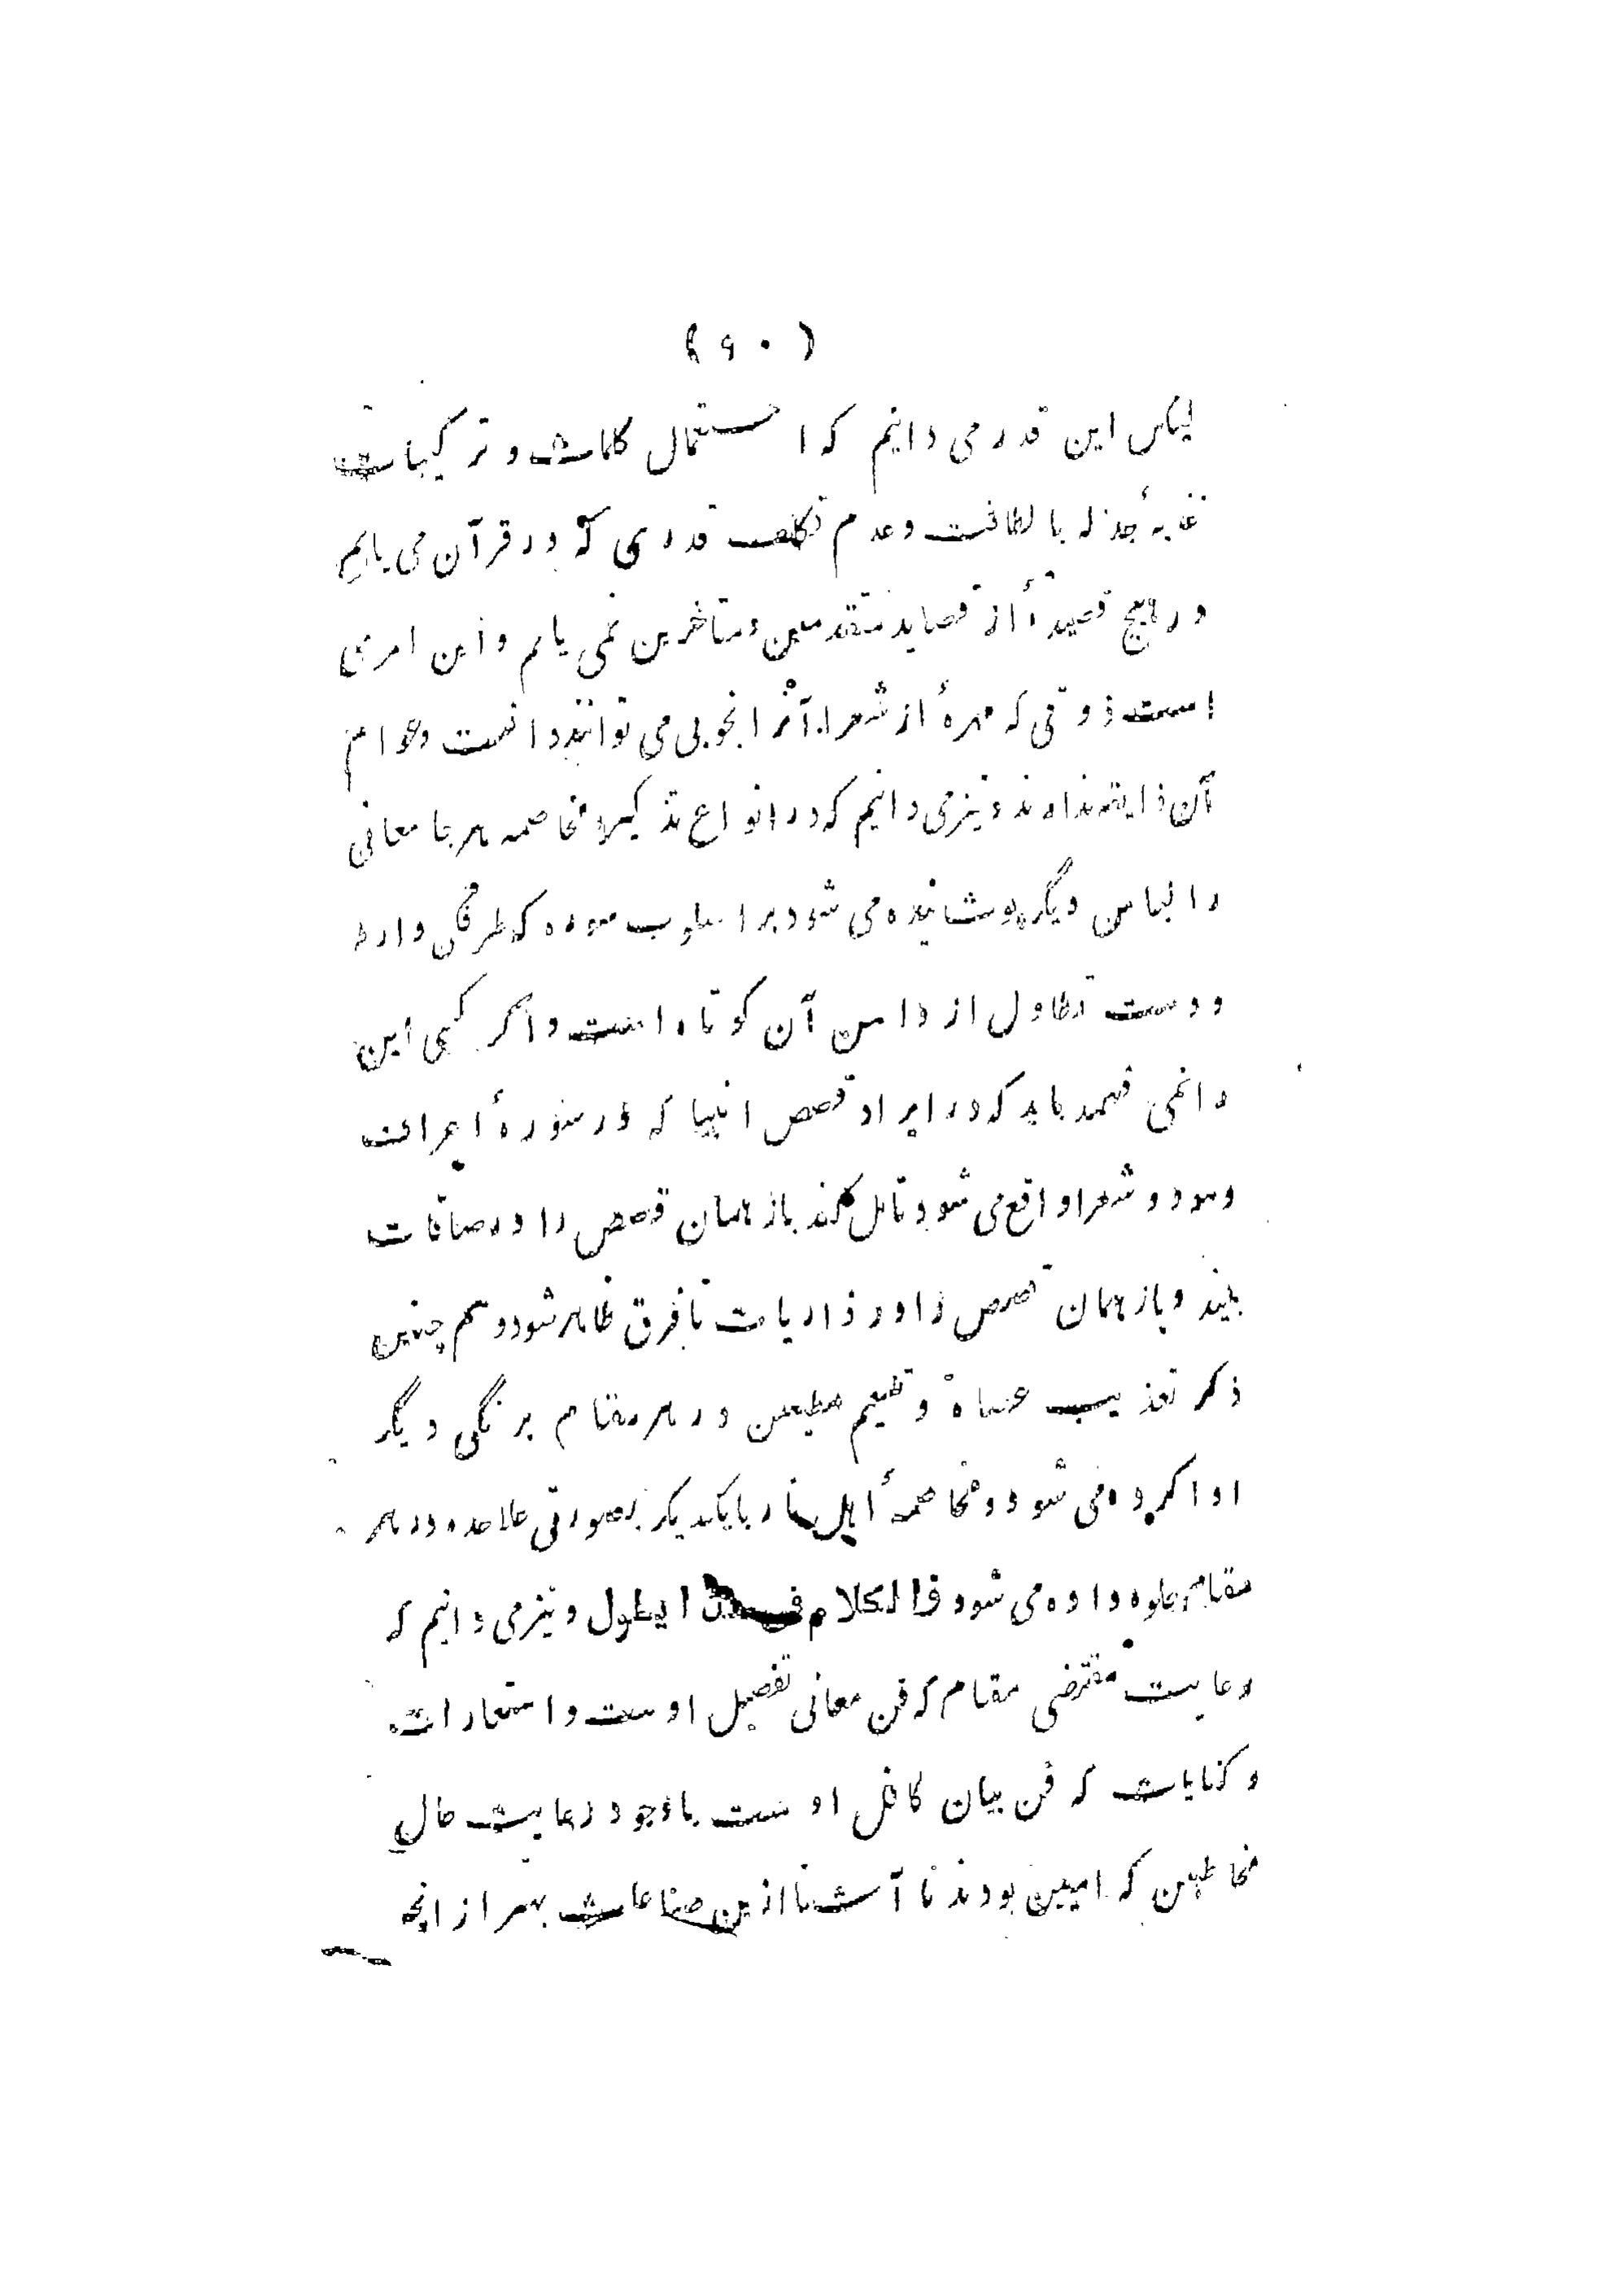 (۶۰)
لیکن این قدر می دانیم که استعمال کلمات و ترکیبات
عذبهٔ جزله با لطافت و عدم تکلف قدری که در قرآن می یابیم
در هیچ قصیدهٔ از قصاید متقدمین و متاخرین نمی یابیم و این امری
است ذوقی که مهرهٔ از شعراء آنرا بخوبی می توانند دانست و عوام
آن ذایقه ندارند و نیز می دانیم که در انواع تذکیر و مخاصمه هر جا معانی
را لباس دیگر پوشانیده می شود بر اسلوب سوره که طرفگی دارد
و دست تطاول از دامن آن کوتاه است و اگر کسی این
را نمی فهمد باید که در ایراد قصص انبیا که در سورهٔ اعراف
و هود و شعرا واقع می شود تامل کند باز همان قصص را در صافات
بیند و باز همان قصص را در ذاریات تا فرق ظاهر شود و هم چنین
ذکر تعذیب عصاة و تنعیم مطیعین در هر مقام برنگی دیگر
ادا کرده می شود و مخاصمهٔ اهل نار با یکدیگر بصورتی علاحده در هر
مقام جلوه داده می شود فالکلام فی هذا یطول و نیز می دانیم که
رعایت مقتضی مقام که فن معانی تفصیل اوست و استعارات
و کنایات که فن بیان کافل اوست با وجود رعایت حال
مخاطبین که امیین بودند نا آشنا ازین صناعات بهتر از انچه